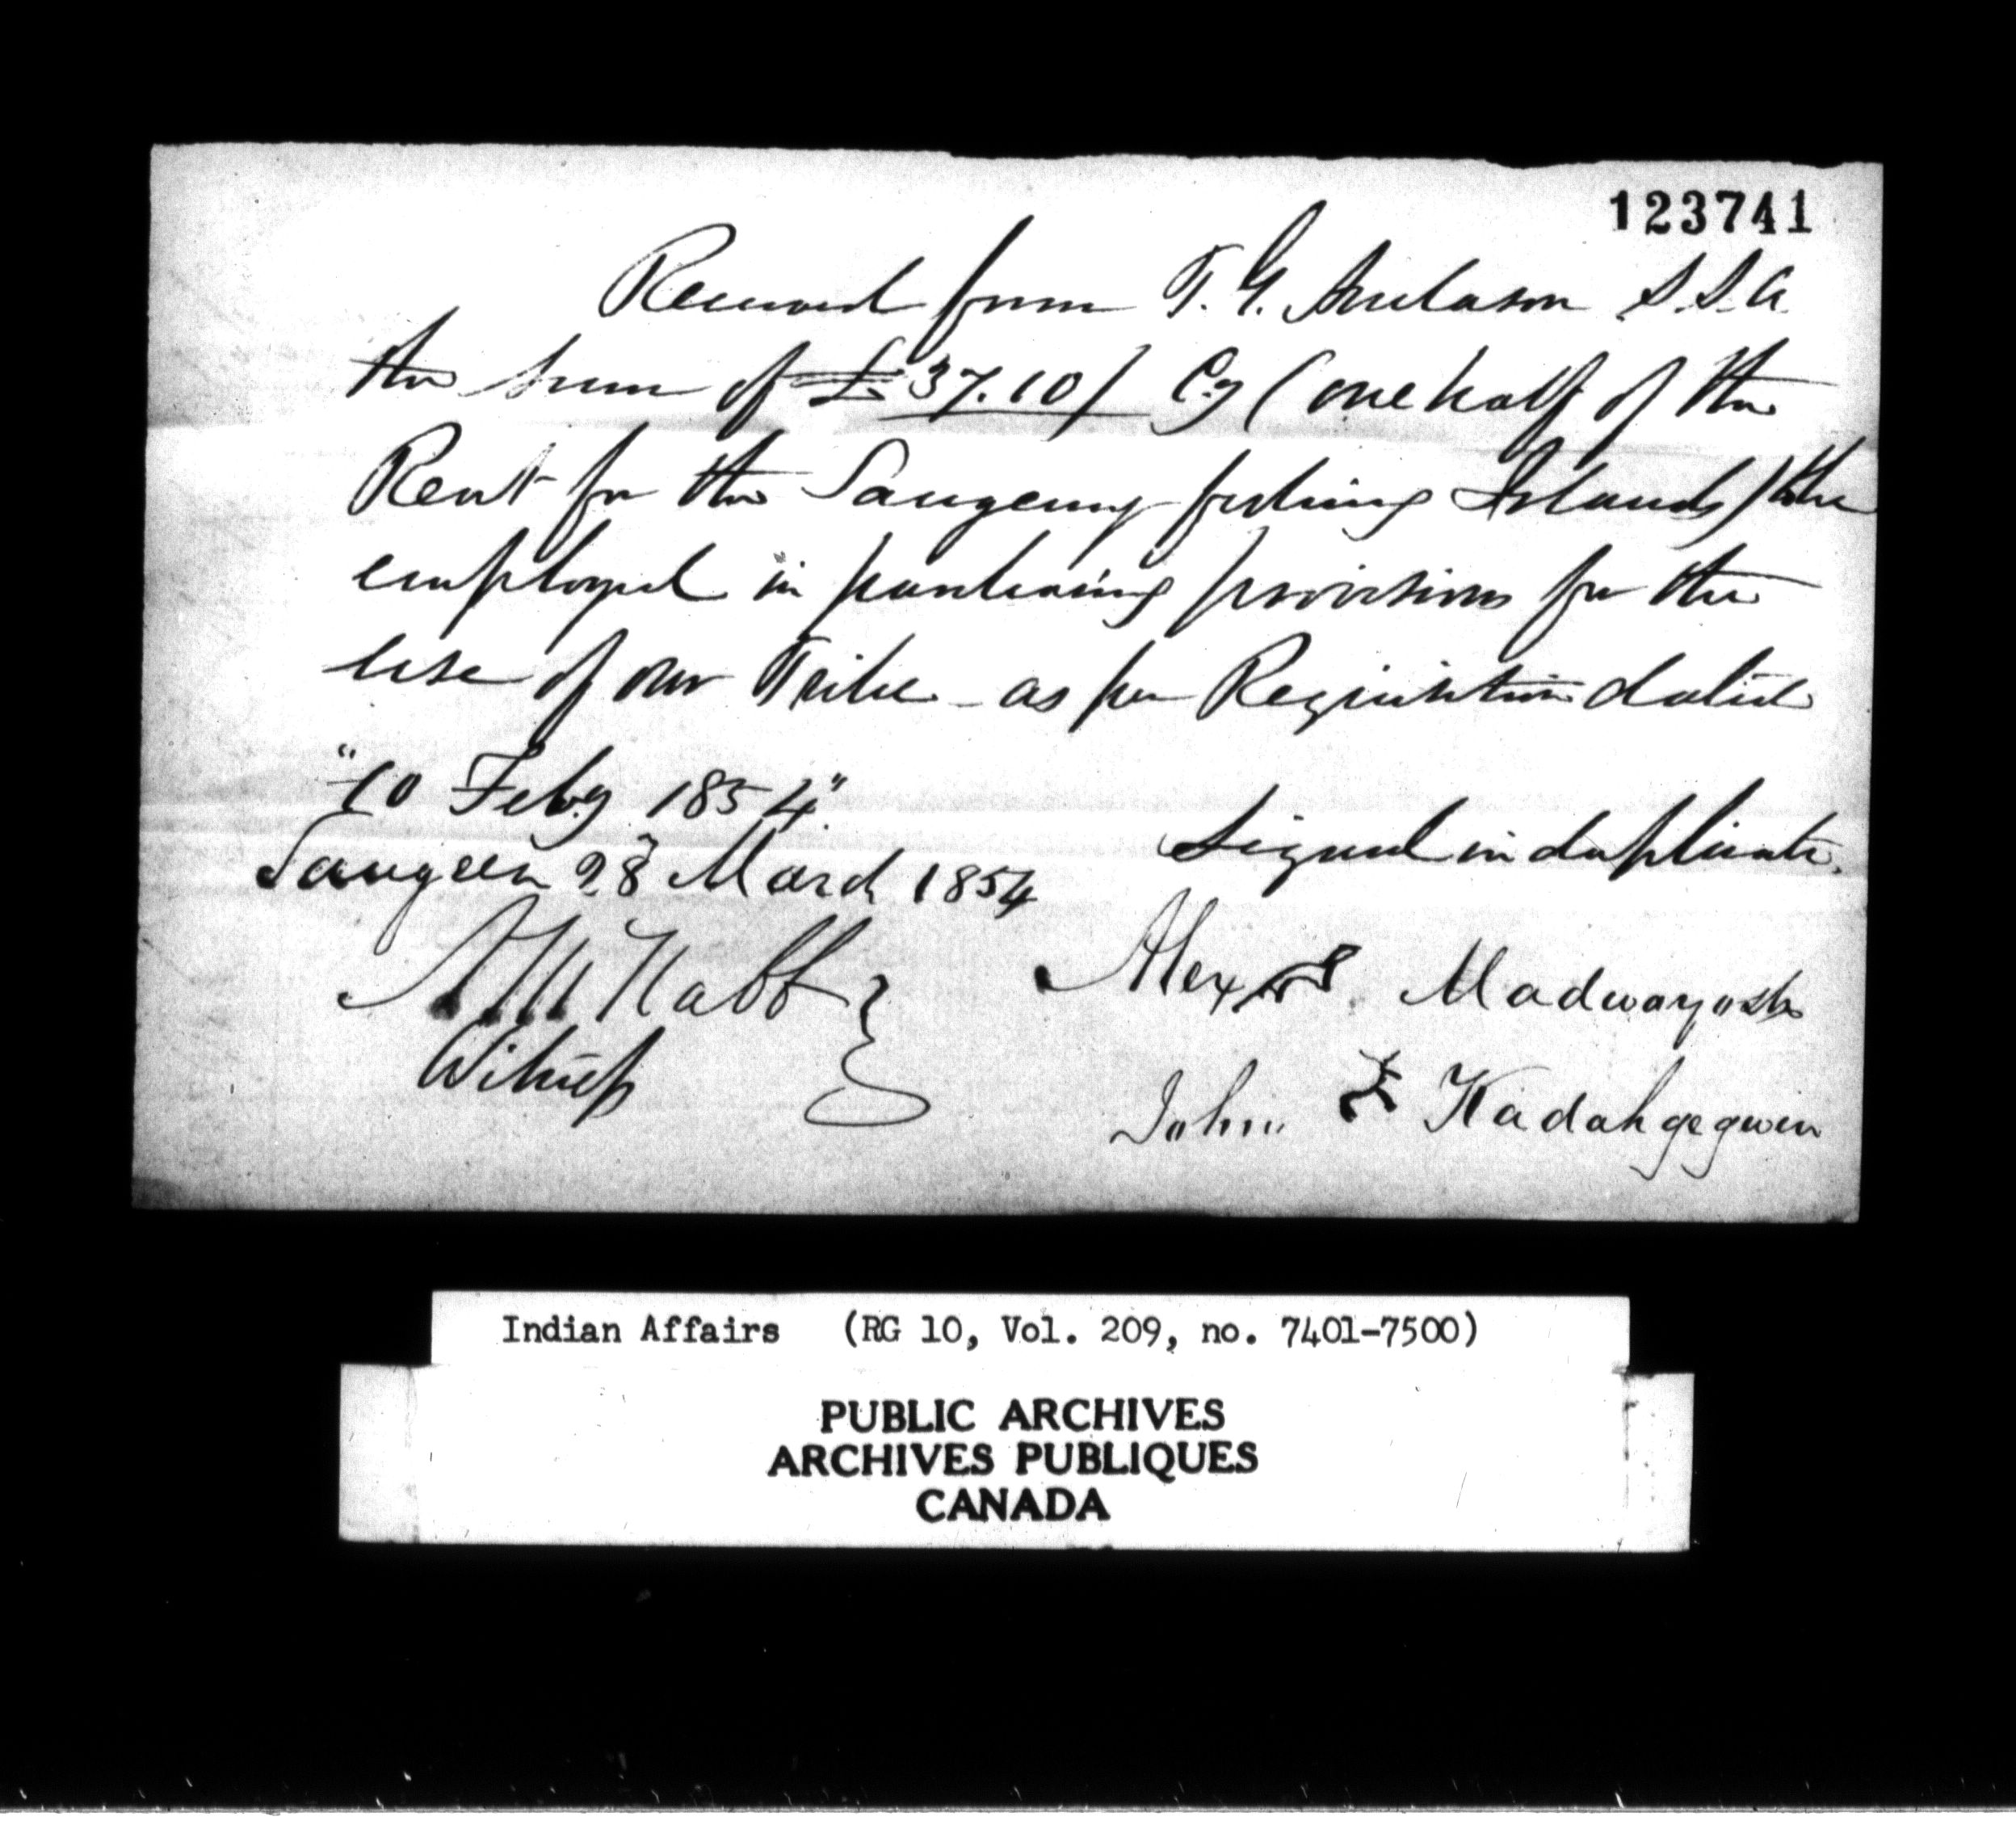 123741
Received from T. G. Anderson S.S.A.
the sum of £37.10/ Cy (one half of the
Rent for the Saugeeng fishing Islands) to be
employed in purchasing provisions for the
use of our Tribe - as per Requisition dated
"10 Feby 1854"
Signed in duplicate.
Saugeen 28 March 1854
A McNabb
Witness
Alexr Madwayosh
John Kadahgegwen
Indian Affairs (RG 10, Vol. 209, no. 7401-7500)
PUBLIC ARCHIVES
ARCHIVES PUBLIQUES
CANADA